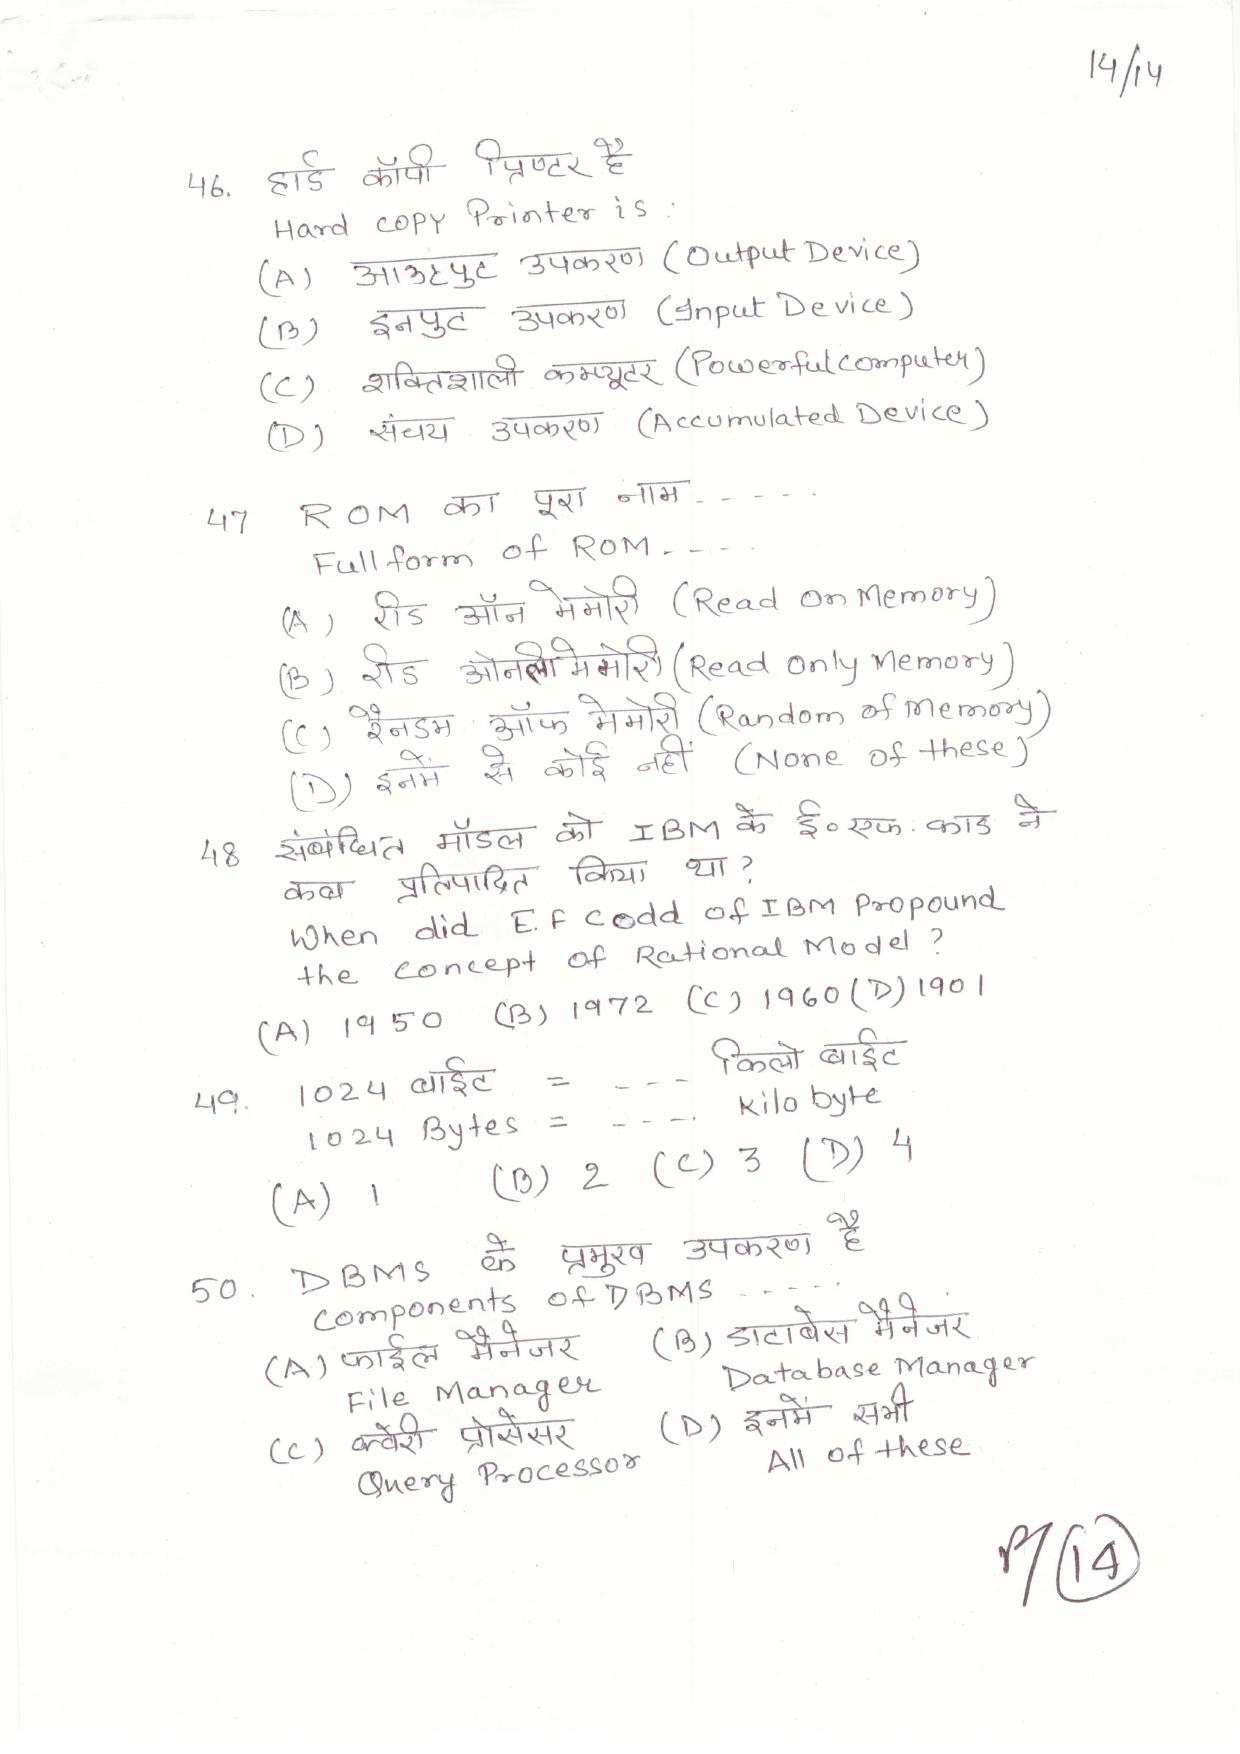 14/14
46. हार्ड कॉपी प्रिण्टर है
Hard copy Printer is :
(A) आउटपुट उपकरण (Output Device)
(B) इनपुट उपकरण (Input Device)
(C) शक्तिशाली कम्प्यूटर (Powerful computer)
(D) संचय उपकरण (Accumulated Device)
47 ROM का पूरा नाम - - - - -
Full form of ROM - - - -
(A) रीड ऑन मेमोरी (Read on Memory)
(B) रीड ओनली मेमोरी (Read only Memory)
(C) रैनडम ऑफ मेमोरी (Random of memory)
(D) इनमें से कोई नहीं (None of these)
48 संबंधित मॉडल को IBM के ई० एफ. काड ने
कब प्रतिपादित किया था ?
When did E.F Codd of IBM Propound
the concept of Rational Model ?
(A) 1950 (B) 1972 (C) 1960 (D) 1901
49. 1024 बाईट = - - - किलो बाईट
1024 Bytes = - - - -. Kilo byte
(A) 1 (B) 2 (C) 3 (D) 4
50. DBMS के प्रमुख उपकरण है
Components of DBMS - - - - -
(A) फाईल मैनेजर (B) डाटाबेस मैनेजर
File Manager Database Manager
(C) क्वेरी प्रोसेसर (D) इनमें सभी
Query Processor All of these
P/14